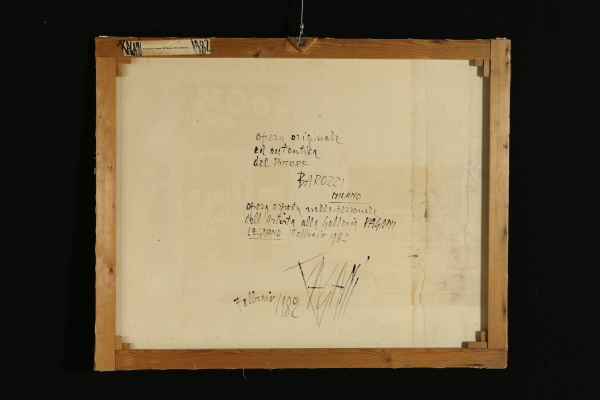 1982
opera originale
ed autentica
del PITTORE
BAROZZI
MILANO
opera esposta nella personale
dell'Artista alla Galleria PAGANI
LEGNANO febbraio 1982
PAGANI
febbraio/1982